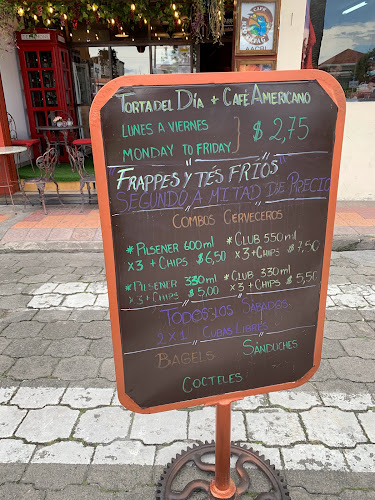 TORTA DEL DÍA + CAFÉ AMERICANO
LUNES A VIERNES
MONDAY TO FRIDAY } $ 2,75
"FRAPPES Y TÉS FRÍOS"
SEGUNDO A MITAD DE PRECIO
COMBOS CERVECEROS
* PILSENER 600ml * CLUB 550ml
x3 + CHIPS $6,50 x3 + CHIPS $7,50
* PILSENER 330ml * CLUB 330ml
x3 + CHIPS $5,00 x3 + CHIPS $5,50
TODOS LOS SÁBADOS
2x1 CUBAS LIBRES
BAGELS SANDUCHES
COCTELES